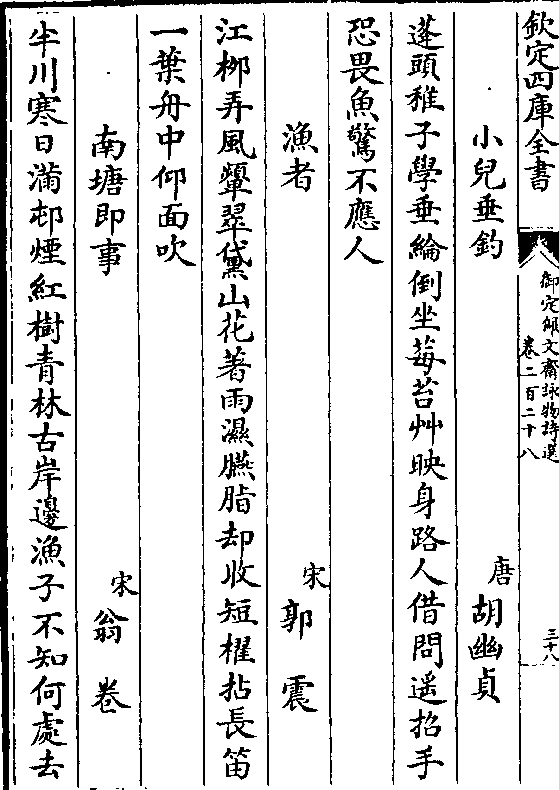 欽定四庫全書
御定佩文齋詠物詩選
卷二百二十八
三十八
小兒垂釣
唐 胡幽貞
蓬頭稚子學垂綸倒坐莓苔艸映身路人借問遥招手
恐畏魚驚不應人
漁者
宋 郭震
江栁弄風顰翠黛山花著雨濕臙脂却收短櫂拈長笛
一葉舟中仰面吹
南塘即事
宋 翁卷
半川寒日滿邨煙紅樹青林古岸邊漁子不知何處去